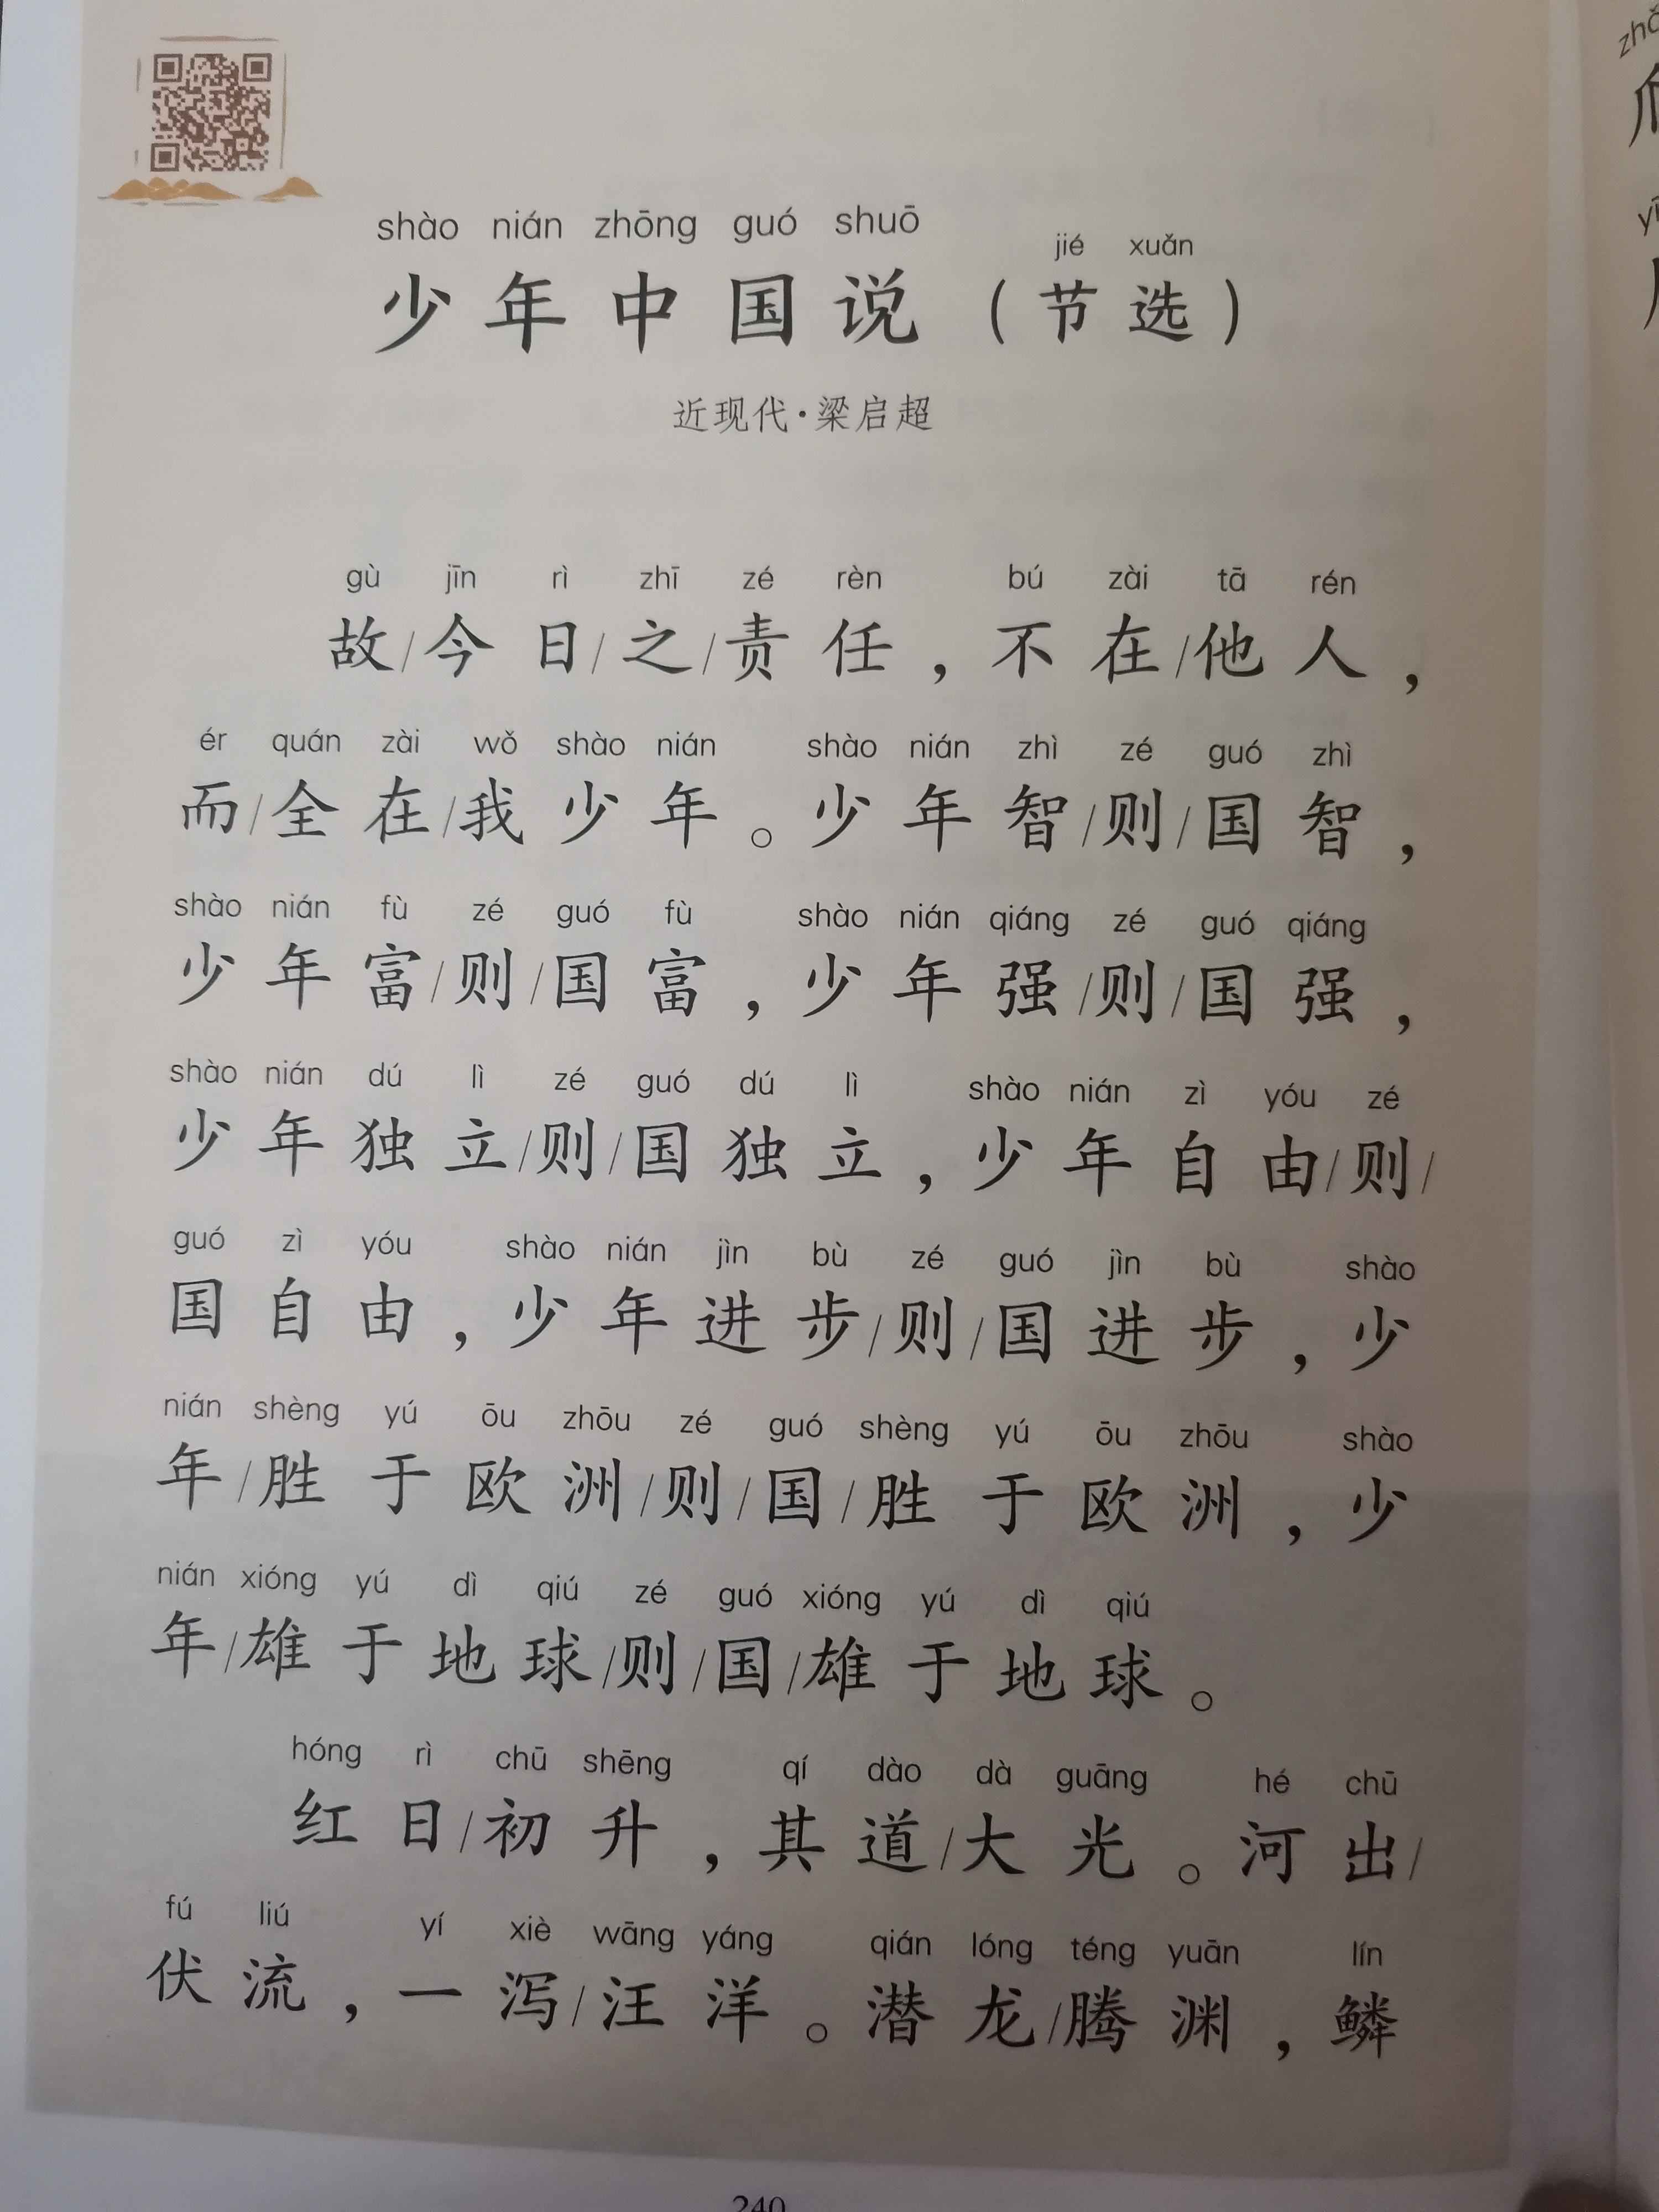 shào nián zhōng guó shuō jié xuǎn
少年中国说（节选）
近现代·梁启超
gù jīn rì zhī zé rèn bú zài tā rén
故/今日/之/责任，不在/他人，
ér quán zài wǒ shào nián shào nián zhì zé guó zhì
而/全在/我少年。少年智/则/国智，
shào nián fù zé guó fù shào nián qiáng zé guó qiáng
少年富/则/国富，少年强/则/国强，
shào nián dú lì zé guó dú lì shào nián zì yóu zé
少年独立/则/国独立，少年自由/则/
guó zì yóu shào nián jìn bù zé guó jìn bù shào
国自由，少年进步/则/国进步，少
nián shèng yú ōu zhōu zé guó shèng yú ōu zhōu shào
年/胜于欧洲/则/国/胜于欧洲，少
nián xióng yú dì qiú zé guó xióng yú dì qiú
年/雄于地球/则/国/雄于地球。
hóng rì chū shēng qí dào dà guāng hé chū
红日/初升，其道/大光。河出/
fú liú yí xiè wāng yáng qián lóng téng yuān lín
伏流，一泻/汪洋。潜龙/腾渊，鳞
240